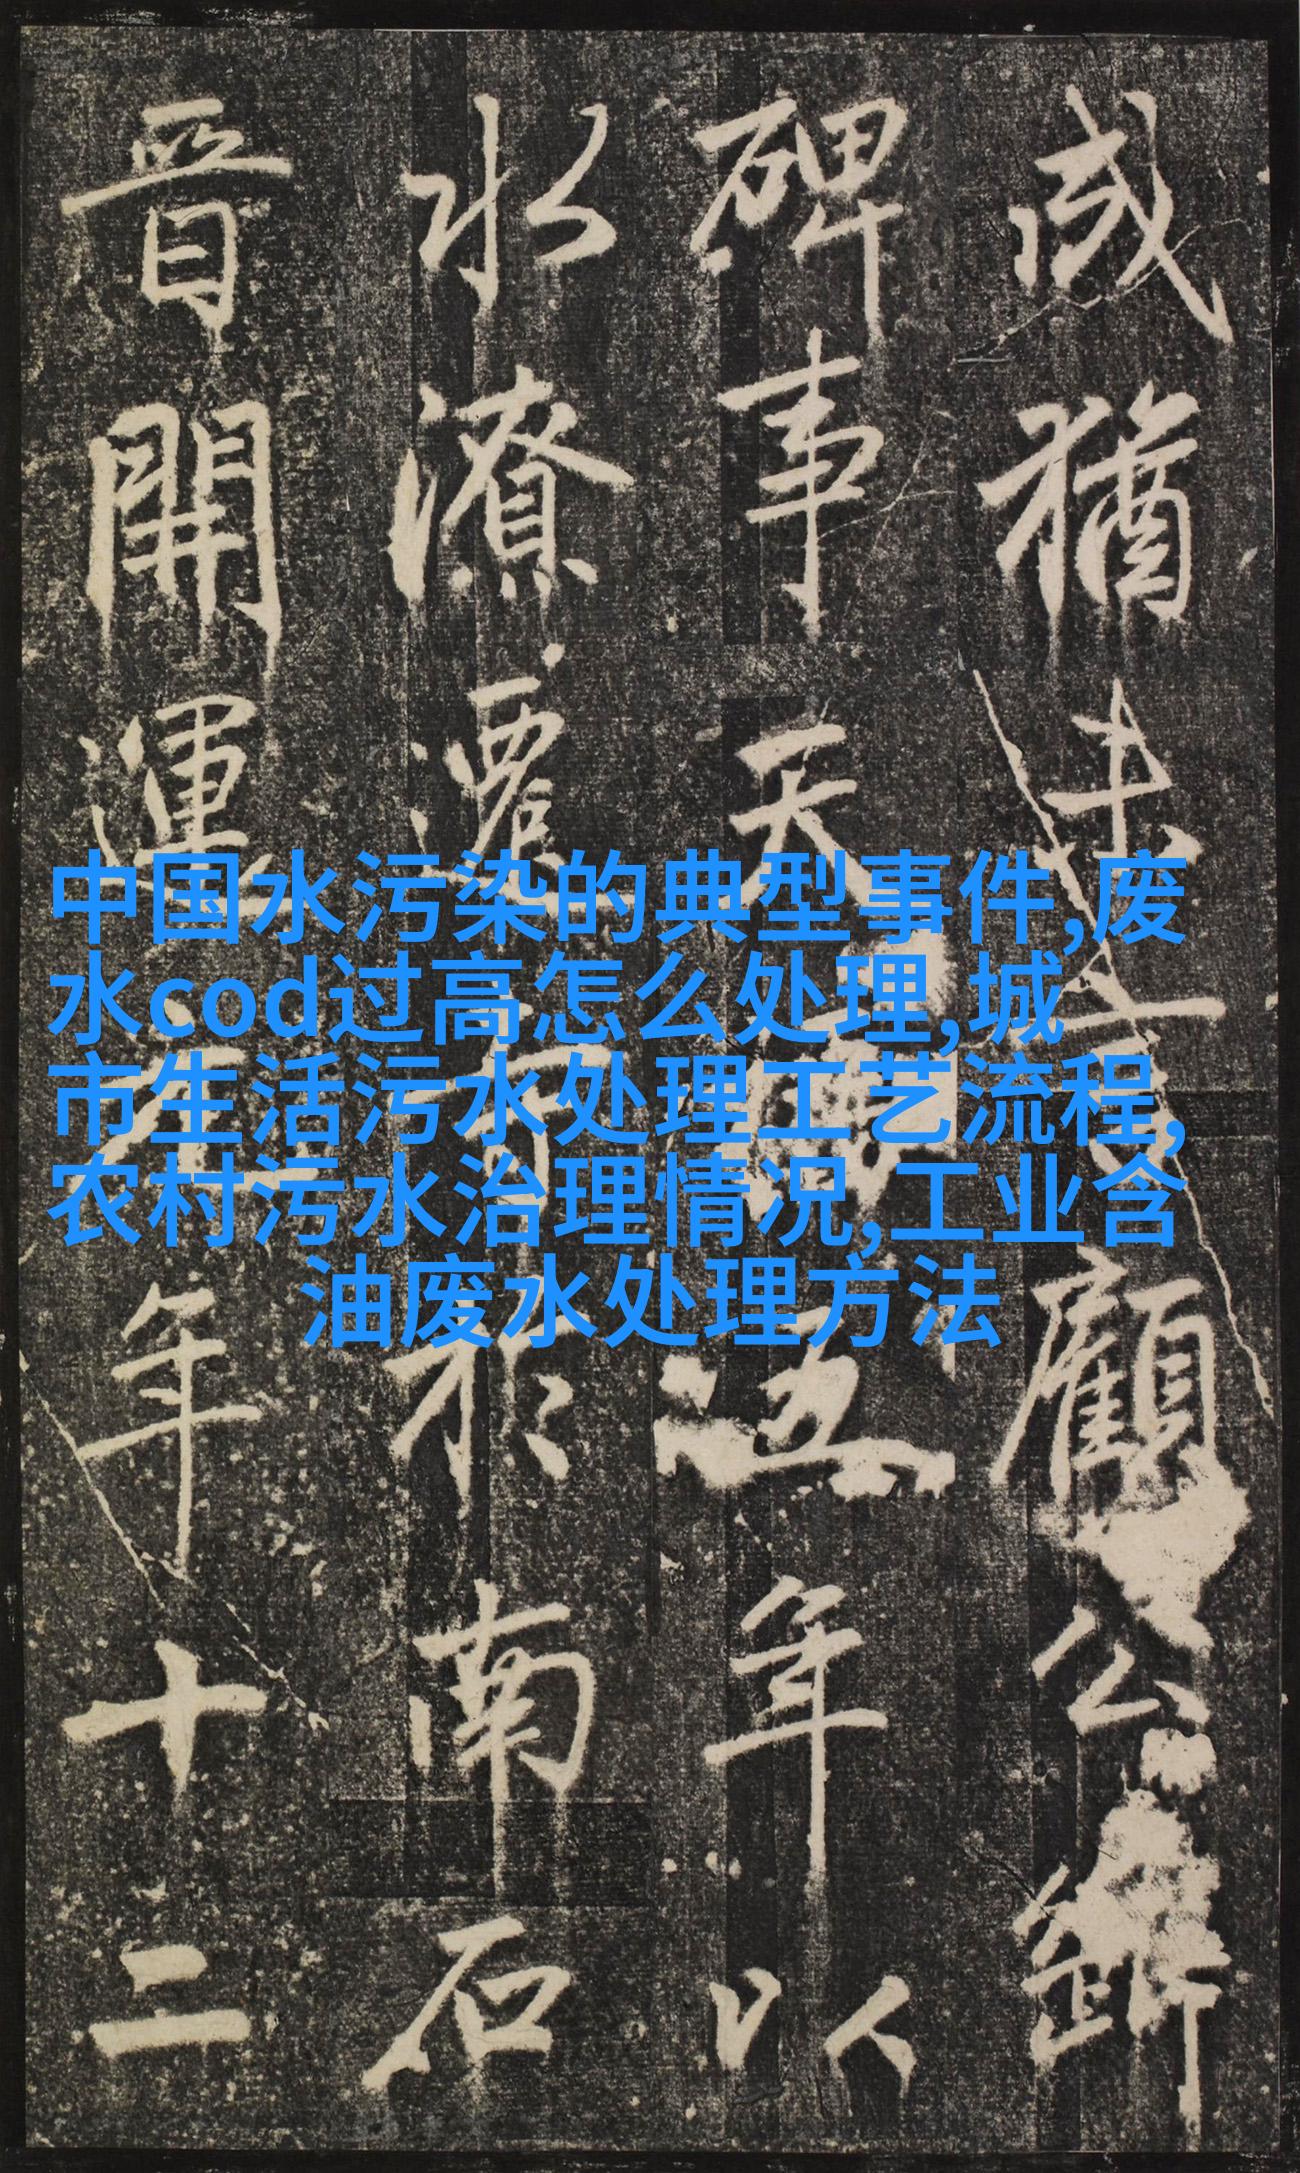 中国水污染的典型事件,废
水cod过高怎么处理,城
市生活污水处理工艺流程,
农村污水治理情况,工业含
油废水处理方法
猶顧公
碑事天五年以
水潦於南石
晉開運年十二